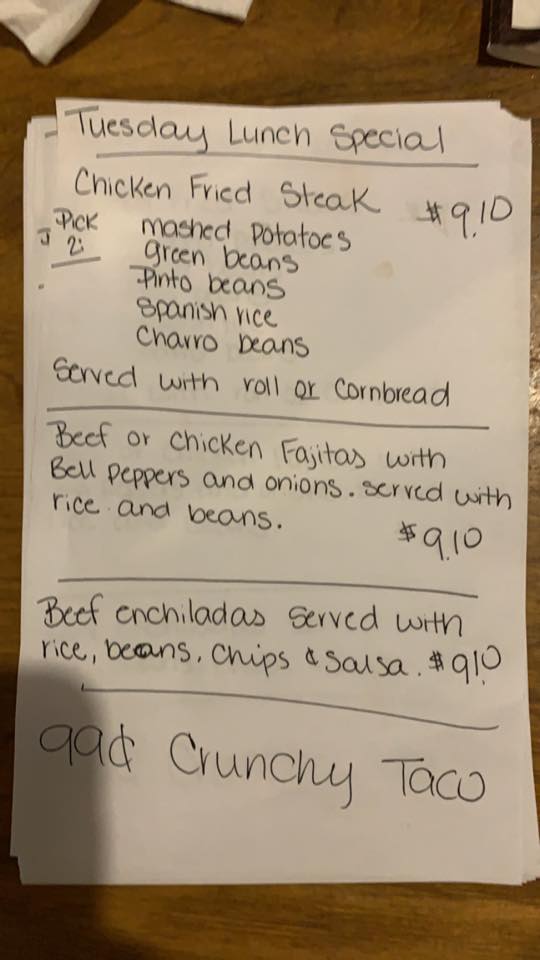 Tuesday Lunch Special
Chicken Fried Steak $9.10
Pick 2: mashed potatoes
green beans
Pinto beans
Spanish rice
Charro beans
Served with roll or Cornbread
Beef or chicken Fajitas with
Bell peppers and onions. served with
rice and beans. $9.10
Beef enchiladas served with
rice, beans, chips & salsa. $9.10
99¢ Crunchy Taco